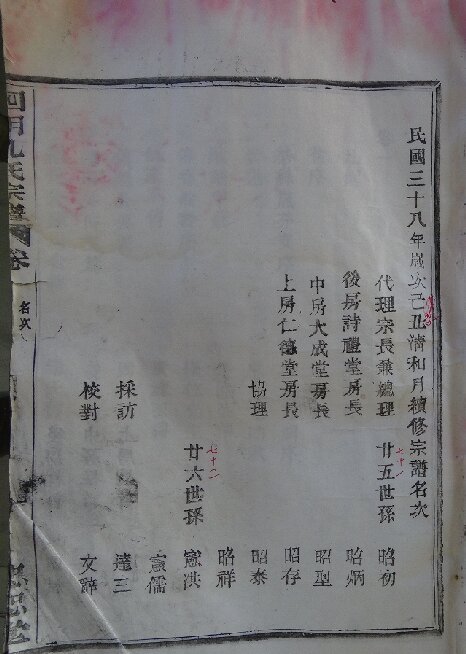 民國三十八年歲次己丑清和月續修宗譜名次
代理宗長兼總理 廿五世孫 昭初
七十一
後房詩禮堂房長 昭炳
中房大成堂房長 昭型
上房仁德堂房長 昭存
協理 昭泰
昭祥
廿六世孫 憲洪
七十二
憲儒
採訪 達三
校對 文辭
四明孔氏宗譜 卷 名次